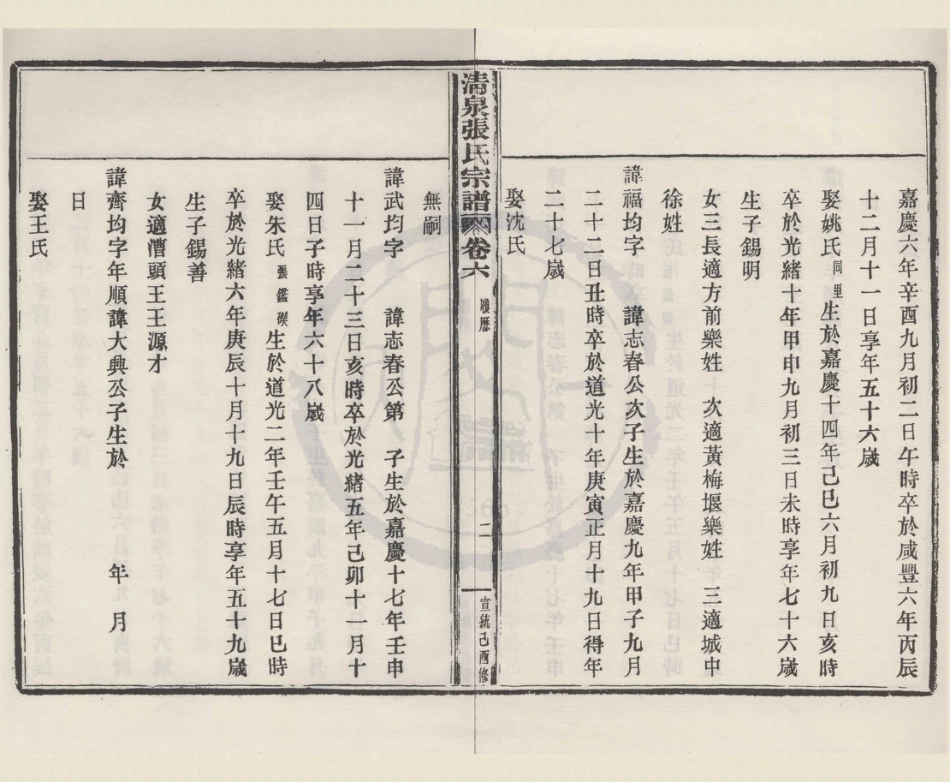 嘉慶六年辛酉九月初二日午時卒於咸豐六年丙辰
十二月十一日享年五十六歲
娶姚氏同里生於嘉慶十四年己巳六月初九日亥時
卒於光緒十年甲申九月初三日未時享年七十六歲
生子錫明
女三長適方前樂姓 次適黃梅堰樂姓 三適城中
徐姓
諱福均字 諱志春公次子生於嘉慶九年甲子九月
二十二日丑時卒於道光十年庚寅正月十九日得年
二十七歲
娶沈氏
清泉張氏宗譜 卷六 履歷 二 宣統己酉修
無嗣
諱武均字 諱志春公第 子生於嘉慶十七年壬申
十一月二十三日亥時卒於光緒五年己卯十一月十
四日子時享年六十八歲
娶朱氏張鑑碶生於道光二年壬午五月十七日巳時
卒於光緒六年庚辰十月十九日辰時享年五十九歲
生子錫善
女適漕頭王王源才
諱齊均字年順諱大興公子生於 年 月
日
娶王氏